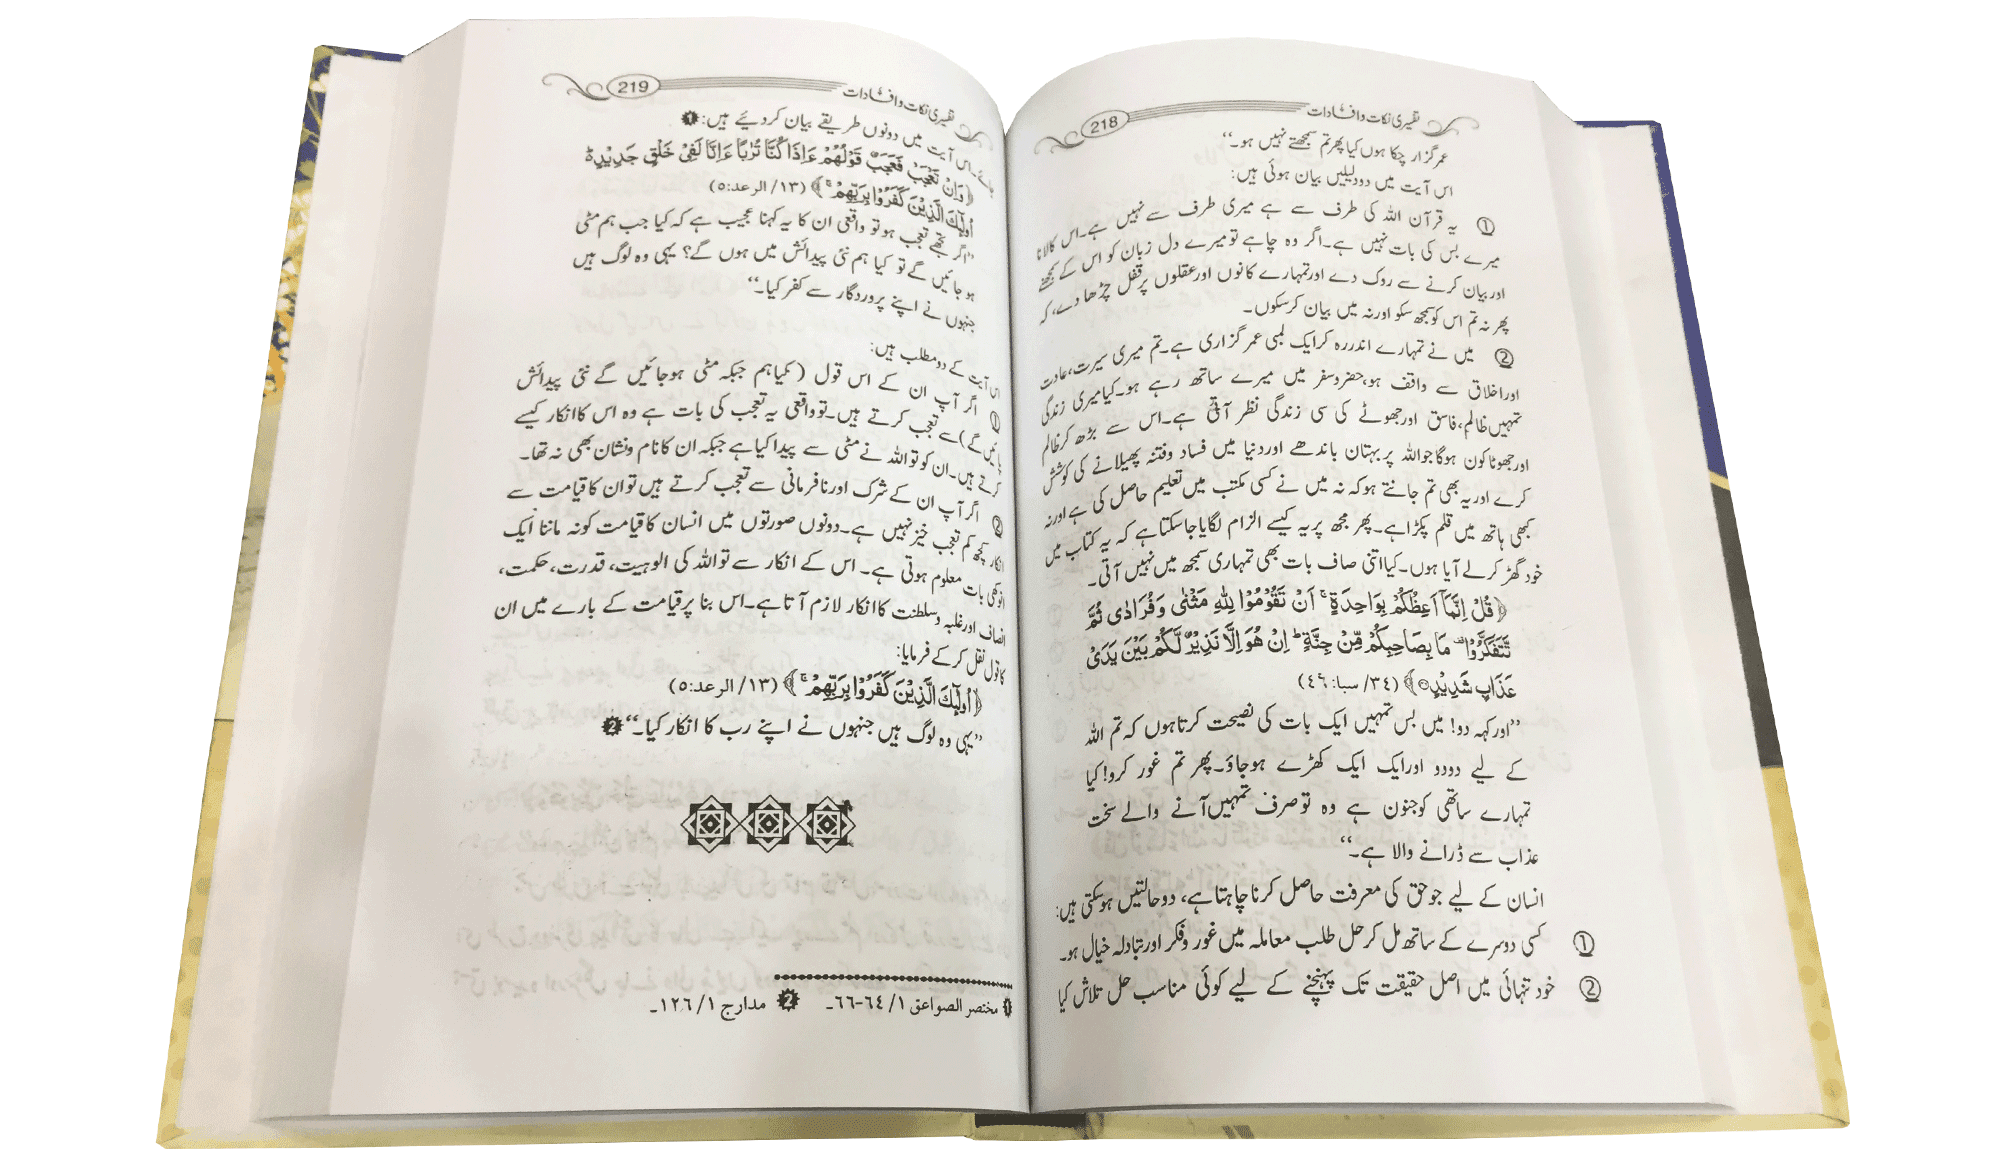 تفسیری نکات وافادات
218
عمر گزار چکا ہوں کیا پھر تم سمجھتے نہیں ہو۔‘‘
اس آیت میں دو دلیلیں بیان ہوئی ہیں:
① یہ قرآن اللہ کی طرف سے ہے میری طرف سے نہیں ہے۔اس کالانا
میرے بس کی بات نہیں ہے۔اگر وہ چاہے تو میرے دل زبان کو اس کے سمجھنے
اور بیان کرنے سے روک دے اور تمہارے کانوں اور عقلوں پر قفل چڑھا دے، کہ
پھر نہ تم اس کو سمجھ سکو اور نہ میں بیان کرسکوں۔
② میں نے تمہارے اندر رہ کر ایک لمبی عمر گزاری ہے۔تم میری سیرت، عادت
اور اخلاق سے واقف ہو، حضر وسفر میں میرے ساتھ رہے ہو۔کیا میری زندگی
تمہیں ظالم، فاسق اور جھوٹے کی سی زندگی نظر آتی ہے۔اس سے بڑھ کر ظالم
اور جھوٹا کون ہوگا جو اللہ پر بہتان باندھے اور دنیا میں فساد وفتنہ پھیلانے کی کوشش
کرے اور یہ بھی تم جانتے ہو کہ نہ میں نے کسی مکتب میں تعلیم حاصل کی ہے اور نہ
کبھی ہاتھ میں قلم پکڑا ہے۔پھر مجھ پر یہ کیسے الزام لگایا جا سکتا ہے کہ یہ کتاب میں
خود گھڑ کر لے آیا ہوں۔کیا اتنی صاف بات بھی تمہاری سمجھ میں نہیں آتی۔
﴿قُلْ اِنَّمَآ اَعِظُكُمْ بِوَاحِدَةٍ ۚ اَنْ تَقُوْمُوْا لِلّٰهِ مَثْنٰى وَفُرَادٰى ثُمَّ
تَتَفَكَّرُوْا ۣ مَا بِصَاحِبِكُمْ مِّنْ جِنَّةٍ ؕ اِنْ هُوَ اِلَّا نَذِيْرٌ لَّكُمْ بَيْنَ يَدَيْ
عَذَابٍ شَدِيْدٍ﴾ (٣٤/ سبا: ٤٦)
’’اور کہہ دو! میں بس تمہیں ایک بات کی نصیحت کرتا ہوں کہ تم اللہ
کے لیے دو دو اور ایک ایک کھڑے ہو جاؤ۔پھر تم غور کرو! کیا
تمہارے ساتھی کو جنون ہے وہ تو صرف تمہیں آنے والے سخت
عذاب سے ڈرانے والا ہے۔‘‘
انسان کے لیے جو حق کی معرفت حاصل کرنا چاہتا ہے، دو حالتیں ہو سکتی ہیں:
① کسی دوسرے کے ساتھ مل کر حل طلب معاملہ میں غور وفکر اور تبادلہ خیال ہو۔
② خود تنہائی میں اصل حقیقت تک پہنچنے کے لیے کوئی مناسب حل تلاش کیا
تفسیری نکات وافادات
219
اس آیت میں دونوں طریقے بیان کر دیئے ہیں: ❶
﴿وَاِنْ تَعْجَبْ فَعَجَبٌ قَوْلُهُمْ ءَاِذَا كُنَّا تُرٰبًا ءَاِنَّا لَفِيْ خَلْقٍ جَدِيْدٍ ؕ
اُولٰٓئِكَ الَّذِيْنَ كَفَرُوْا بِرَبِّهِمْ ۚ﴾ (١٣/ الرعد:٥)
’’اگر تجھے تعجب ہو تو واقعی ان کا یہ کہنا عجیب ہے کہ کیا جب ہم مٹی
ہو جائیں گے تو کیا ہم نئی پیدائش میں ہوں گے؟ یہی وہ لوگ ہیں
جنہوں نے اپنے پروردگار سے کفر کیا۔‘‘
اس آیت کے دو مطلب ہیں:
① اگر آپ ان کے اس قول (کیا ہم جبکہ مٹی ہو جائیں گے نئی پیدائش
پائیں گے) سے تعجب کرتے ہیں۔تو واقعی یہ تعجب کی بات ہے وہ اس کا انکار کیسے
کرتے ہیں۔ان کو تو اللہ نے مٹی سے پیدا کیا ہے جبکہ ان کا نام ونشان بھی نہ تھا۔
② اگر آپ ان کے شرک اور نافرمانی سے تعجب کرتے ہیں تو ان کا قیامت سے
انکار کچھ کم تعجب خیز نہیں ہے۔دونوں صورتوں میں انسان کا قیامت کو نہ ماننا ایک
انوکھی بات معلوم ہوتی ہے۔ اس کے انکار سے تو اللہ کی الوہیت، قدرت، حکمت،
انصاف اور غلبہ وسلطنت کا انکار لازم آتا ہے۔اس بنا پر قیامت کے بارے میں ان
کا قول نقل کر کے فرمایا:
﴿اُولٰٓئِكَ الَّذِيْنَ كَفَرُوْا بِرَبِّهِمْ ۚ﴾ (١٣/ الرعد:٥)
’’یہی وہ لوگ ہیں جنہوں نے اپنے رب کا انکار کیا۔‘‘ ❷
❶ مختصر الصواعق ١/ ٦٤-٦٦۔ ❷ مدارج ١/ ١٢٦۔